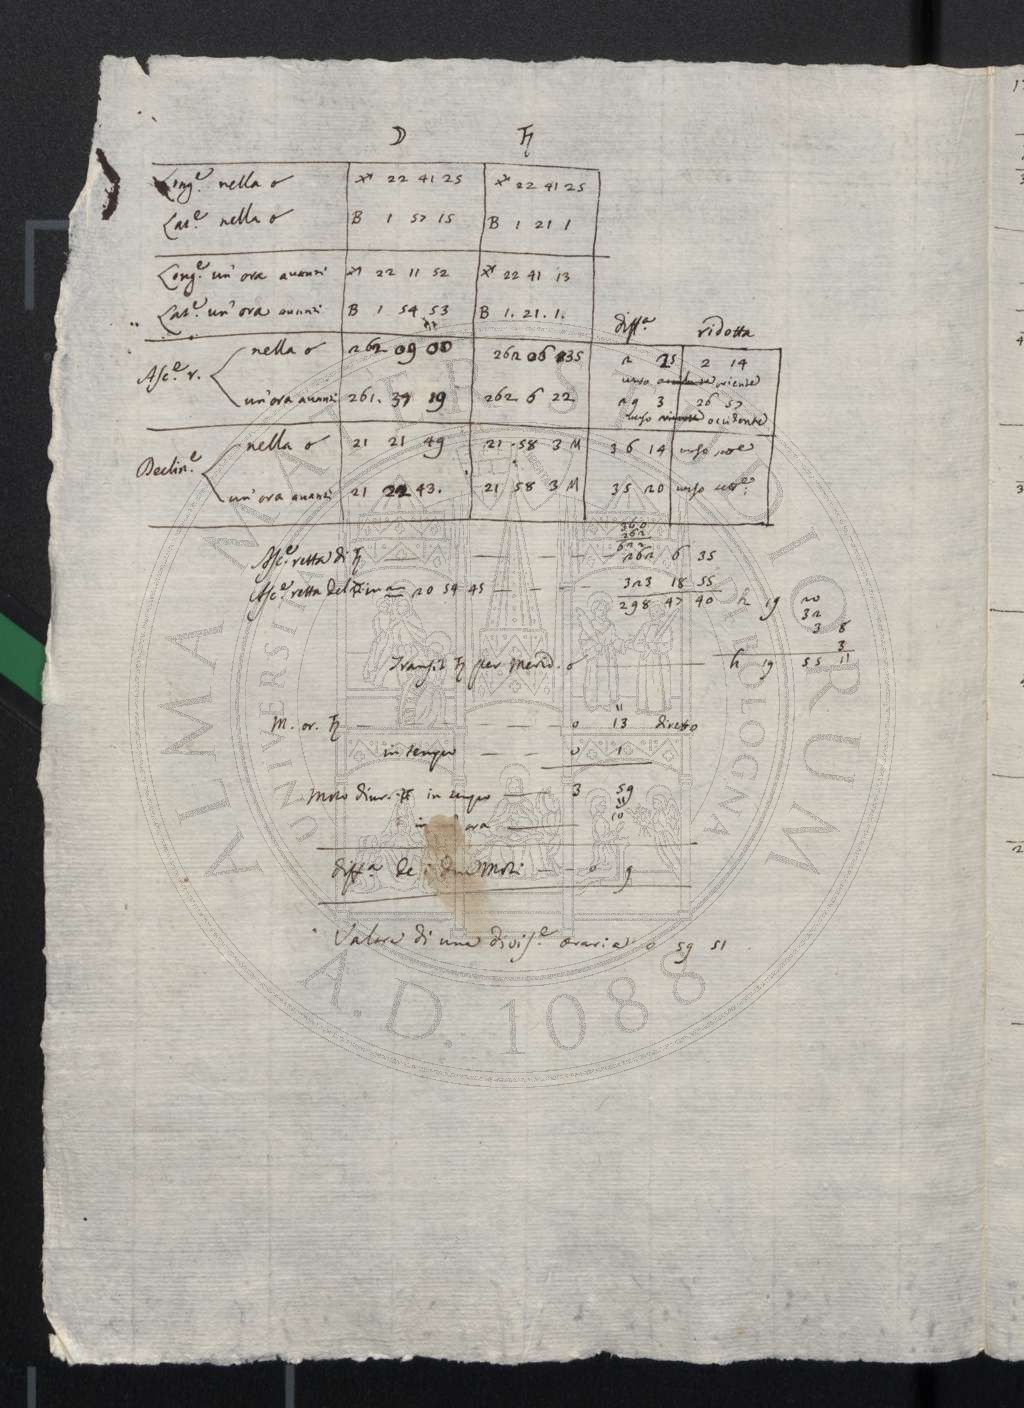 ☽ ♄
Long.e nella ☌ ♐ 22 41 25 ♐ 22 41 25
Lat.e nella ☌ B 1 57 15 B 1 21 1
Long.e un'ora auanti ♐ 22 11 52 ♐ 22 41 13
Lat.e un'ora auanti B 1 54 53 B 1. 21. 1.
diff.a ridotta
Asc.e r. nella ☌ 262 09 00 262 06 35 2 25 2 14
uerso oriente
un'ora auanti 261. 37 19 262 6 22 29 3 26 57
uerso occidente
Declin.e nella ☌ 21 21 49 21 58 3 M 36 14 uerso
un'ora auanti 21 22 43. 21 58 3 M 35 20 uerso
360
262
622
Asc.e retta di ♄ 262 6 35
Asc.e retta del in 20 54 45 323 18 55
298 47 40 h 19 20
32
3 8
3
Transit ♄ per Merid. 0 h 19 55 11
M. or. ♄ 0 13 diretto
in tempo 0 1
Moto diur. in tempo 3 59
in ora 10
diff.a de i due Moti 0 9
Valore di una diuis.e oraria 0 59 51
ALMA MATER STUDIORUM
UNIVERSITÀ DI BOLOGNA
A.D. 1088